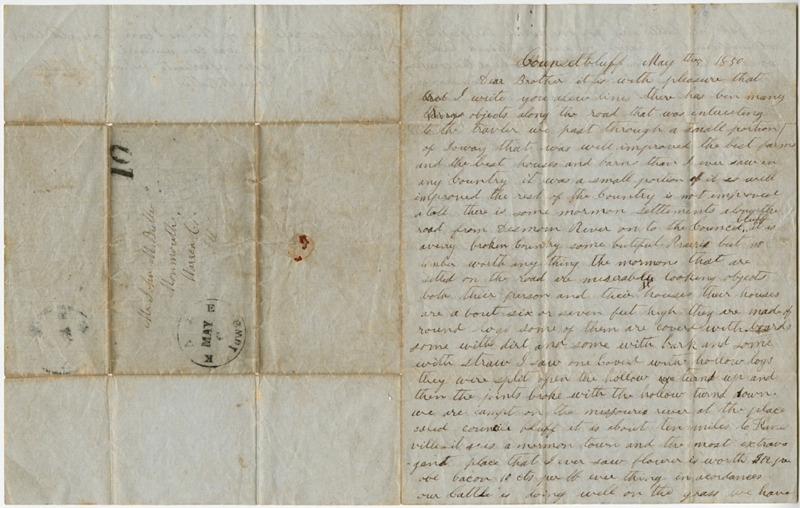 10
Monmouth
Warren Co.
MAY
IOWA
Councilbluff May 1850
Dear Brother it is with pleasure that
I write you a few lines there has ben many
objects along the road that was interesting
to the travler we past through a small portion
of Ioway that was well improved the best farms
and the best houses and barns than I ever saw in
any Country it was a small portion of it so well
improved the rest of the Country is not improved
atall there is some mormon settlements along the
road from Desmoin River on to the Council bluff it is
avery broken Country some butiful Prairie but no
timber worth any thing the mormons that are
setled on the road are miserable looking objects
both their person and their houses their houses
are about six or seven feet high they are made of
round logs some of them are coverd with boards
some with dirt and some with bark and some
with straw I saw one coverd with hollow logs
they were split open the hollow turnd up and
then the joints broke with the hollow turnd down
we are campt on the missouris river at the place
caled council bluff it is about ten miles to
ville it is a mormon town and the most extrava
gant place that I ever saw flower is worth
bacon 10 cts per lb ever thing in acordances
our cattle is doing well on the grass we have